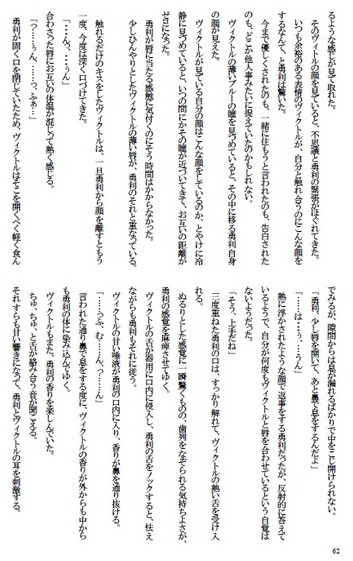 るような感じが見て取れた。
そのヴィクトルの顔を見ていると、不思議と勇利の緊張がほぐれてきた。
いつも余裕のある表情のヴィクトルが、自分と触れ合うのにこんな顔を
するなんて、と勇利は驚いた。
今まで優しくされたのも、一緒に住もうと言われたのも、告白された
のも、どこか他人事みたいに捉えていたのかもしれない。
ヴィクトルの薄いブルーの瞳を見つめていると、その中に移る勇利自身
の顔が見えた。
ヴィクトルが見ている自分の顔はこんな顔をしているのか、とやけに冷
静に見つめていると、いつの間にかその瞳が近づいてきて、お互いの距離
がゼロになった。
勇利が唇に当たる感触に気付くのにそう時間はかからなかった。
少しひんやりとしたヴィクトルの薄い唇が、勇利のそれと重なっている。
触れるだけのキスをしたヴィクトルは、一旦勇利から顔を離すともう
一度、今度は深く口づけてきた。
「っ・・・ん、・・・・うん」
合わさった唇にお互いの体温が混じって熱く感じる。
「っ・・・・うん、・・・っ、ふぁ・・・」
勇利が固く口を閉じていたため、ヴィクトルはそこを開くべく軽く食ん
でみるが、隙間からは息が漏れるばかりで中をこじ開けられない。
「勇利、少し唇を開いて、あと鼻で息をするんだよ」
「・・・・は・・・っ、・・・うん」
熱に浮かされたような顔で返事をする勇利だったが、反射的に答えて
いるようで、自分が何度もヴィクトルと唇を合わせているという自覚は
ないようだった。
「そう、上手だね」
三度重ねた勇利の口は、すっかり解れて、ヴィクトルの熱い舌を受け入
れる。
ぬるりとした感覚に一瞬驚くものの、歯列をなぞられる気持ちよさが、
勇利の感覚を麻痺させてゆく。
ヴィクトルの舌が器用に口内に侵入し、勇利の舌をノックすると、怯え
ながらも勇利もそれに従う。
ヴィクトルの甘い唾液が勇利の口内に入り、香りが鼻を通り抜ける。
「・・・・うぅ、む・・・・んっ、・・・・っぅん」
言われた通り鼻で息をする度に、ヴィクトルの香りが外からも中から
も勇利の体に染み込んでゆく。
ヴィクトルもまた、勇利の香りを楽しんでいた。
ちゅ、ちゅっと舌が絡み合う音が聞こえる。
それすらも甘い響きとなって、勇利とヴィクトルの耳を刺激する。
62